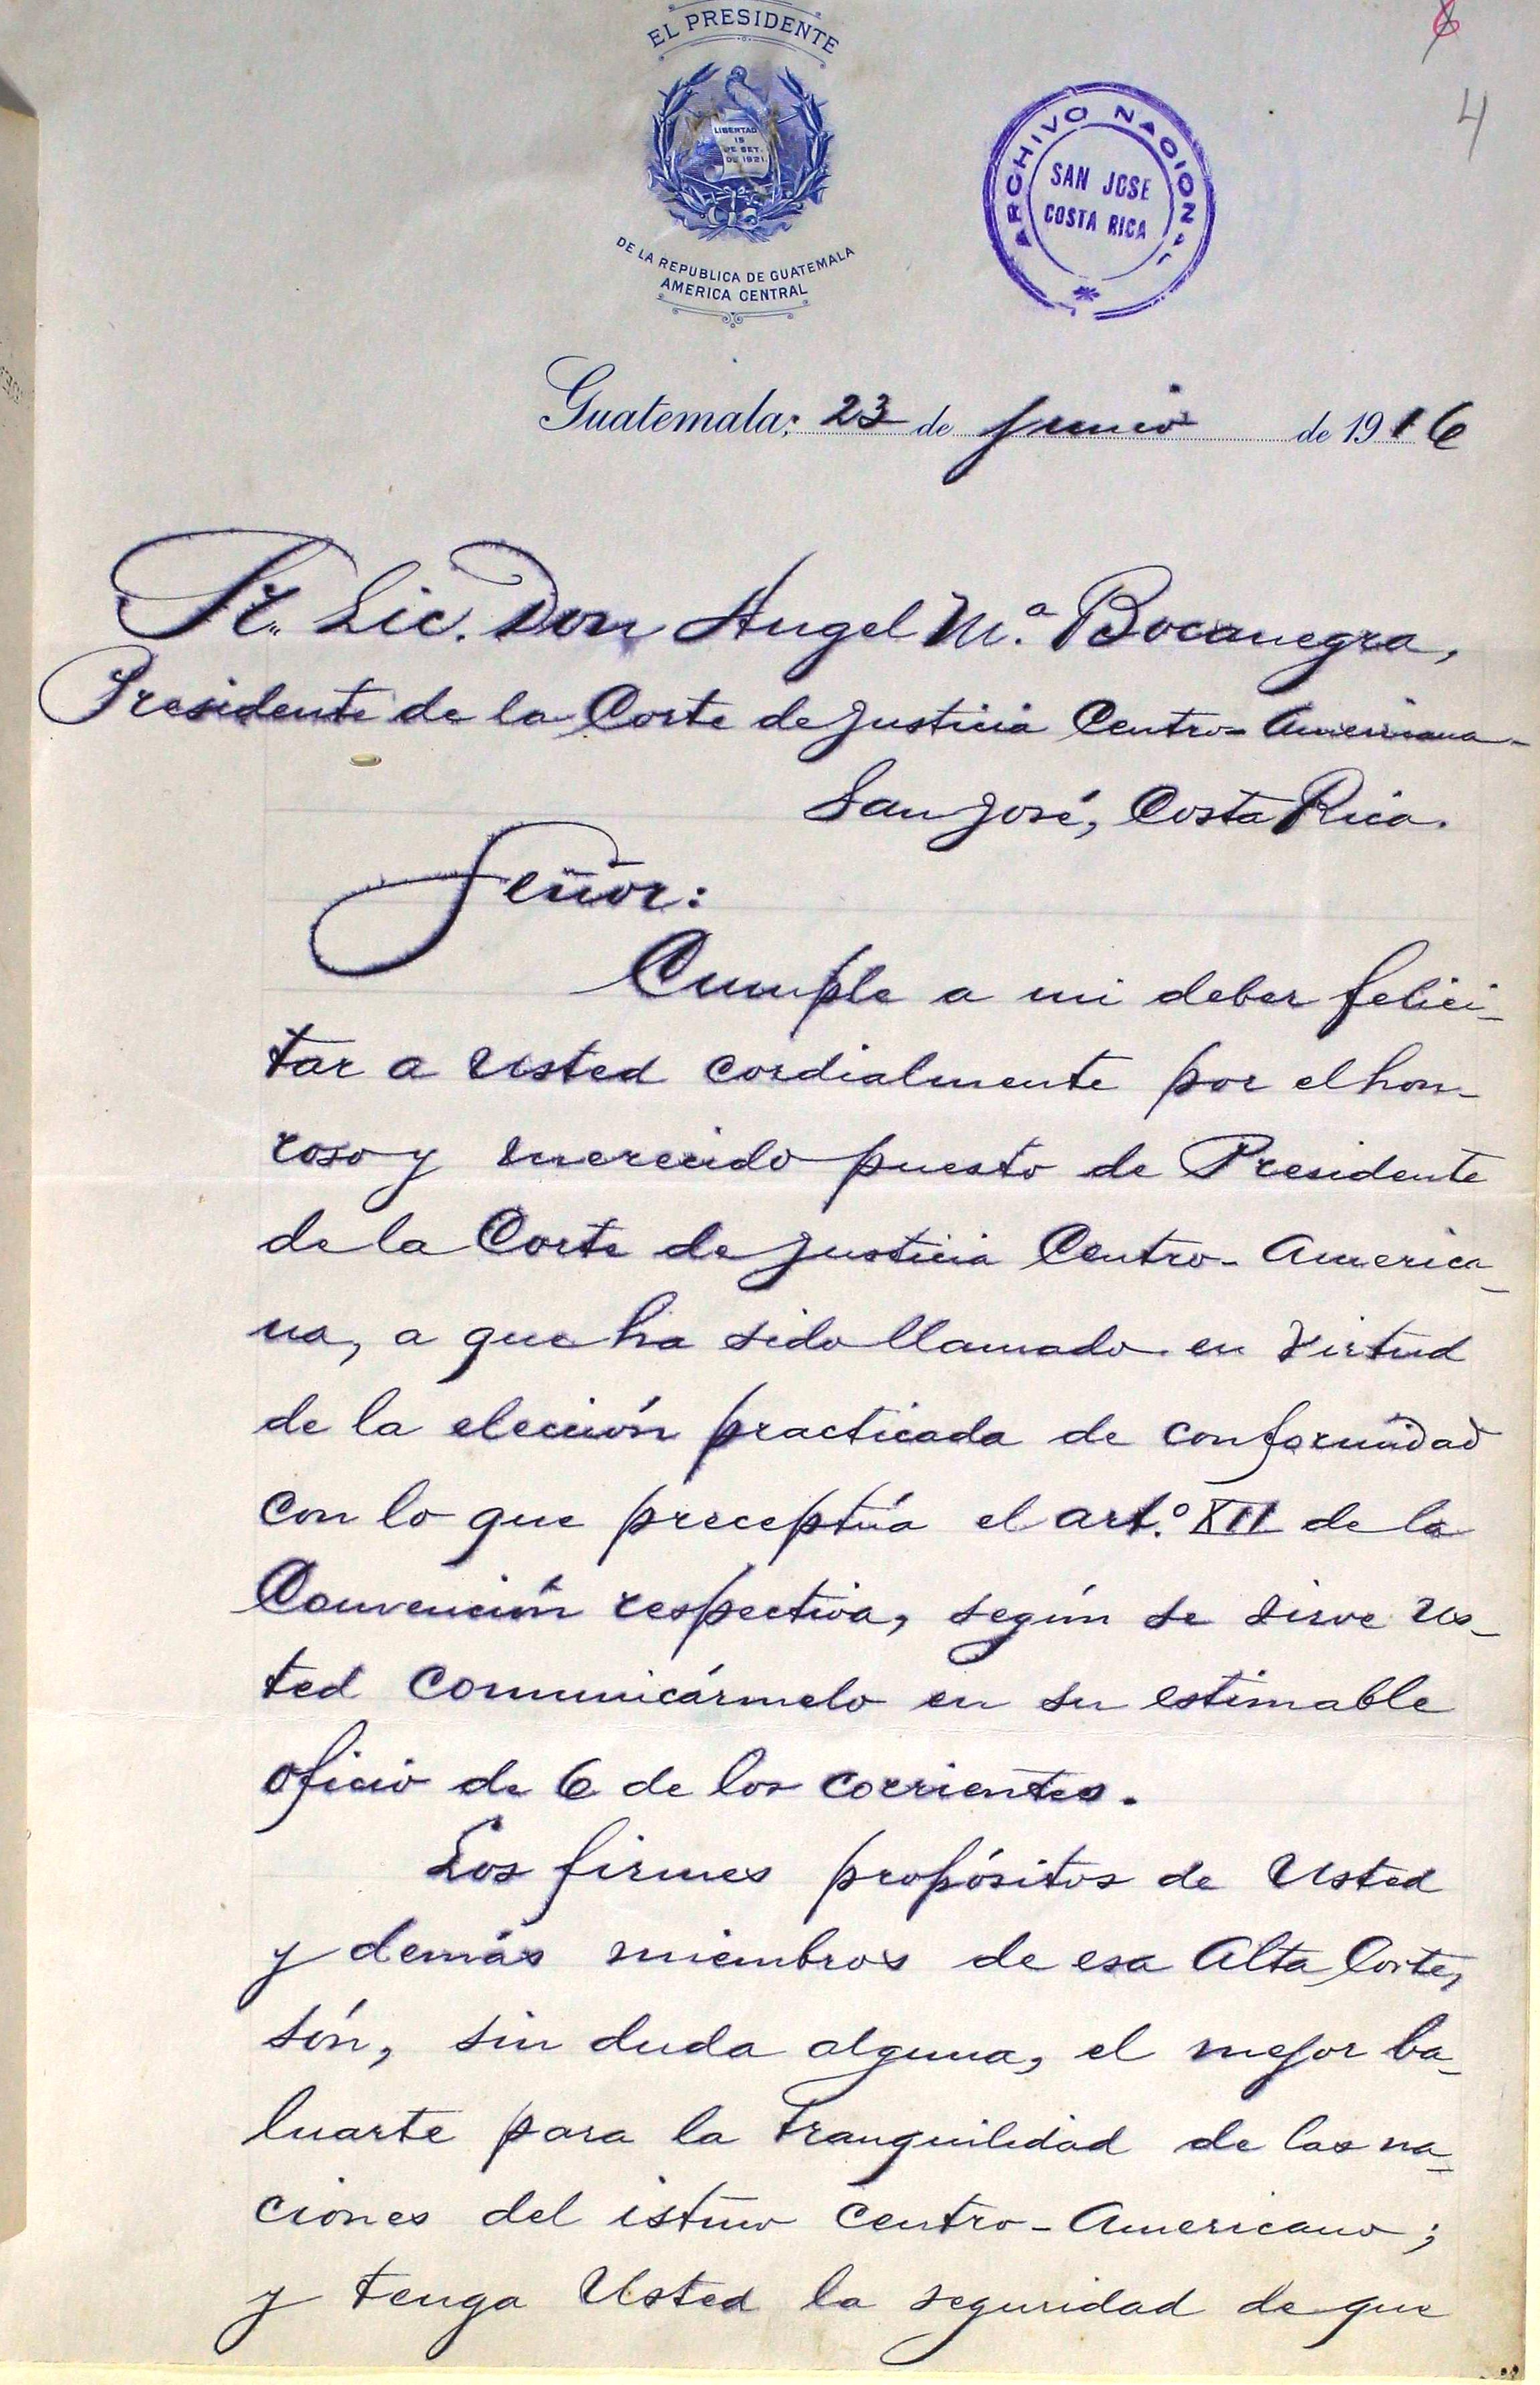 6
4
EL PRESIDENTE
LIBERTAD
15
DE SET.
DE 1821.
DE LA REPUBLICA DE GUATEMALA
AMERICA CENTRAL
ARCHIVO NACIONAL
SAN JOSE
COSTA RICA
Guatemala: 23 de junio de 1916
Sr. Lic. Don Angel Mª. Bocanegra,
Presidente de la Corte de Justicia Centro-Americana-
San José, Costa Rica.
Señor:
Cumple a mi deber felici-
tar a Usted cordialmente por el hon-
roso y merecido puesto de Presidente
de la Corte de Justicia Centro-America-
na, a que ha sido llamado en virtud
de la elección practicada de conformidad
con lo que preceptúa el artº. XII de la
Convención respectiva, según se sirve Us-
ted comunicármelo en su estimable
oficio de 6 de los corrientes.
Los firmes propósitos de Usted
y demás miembros de esa Alta Corte,
són, sin duda alguna, el mejor ba-
luarte para la tranquilidad de las na-
ciones del istmo Centro-Americano;
y tenga Usted la seguridad de que